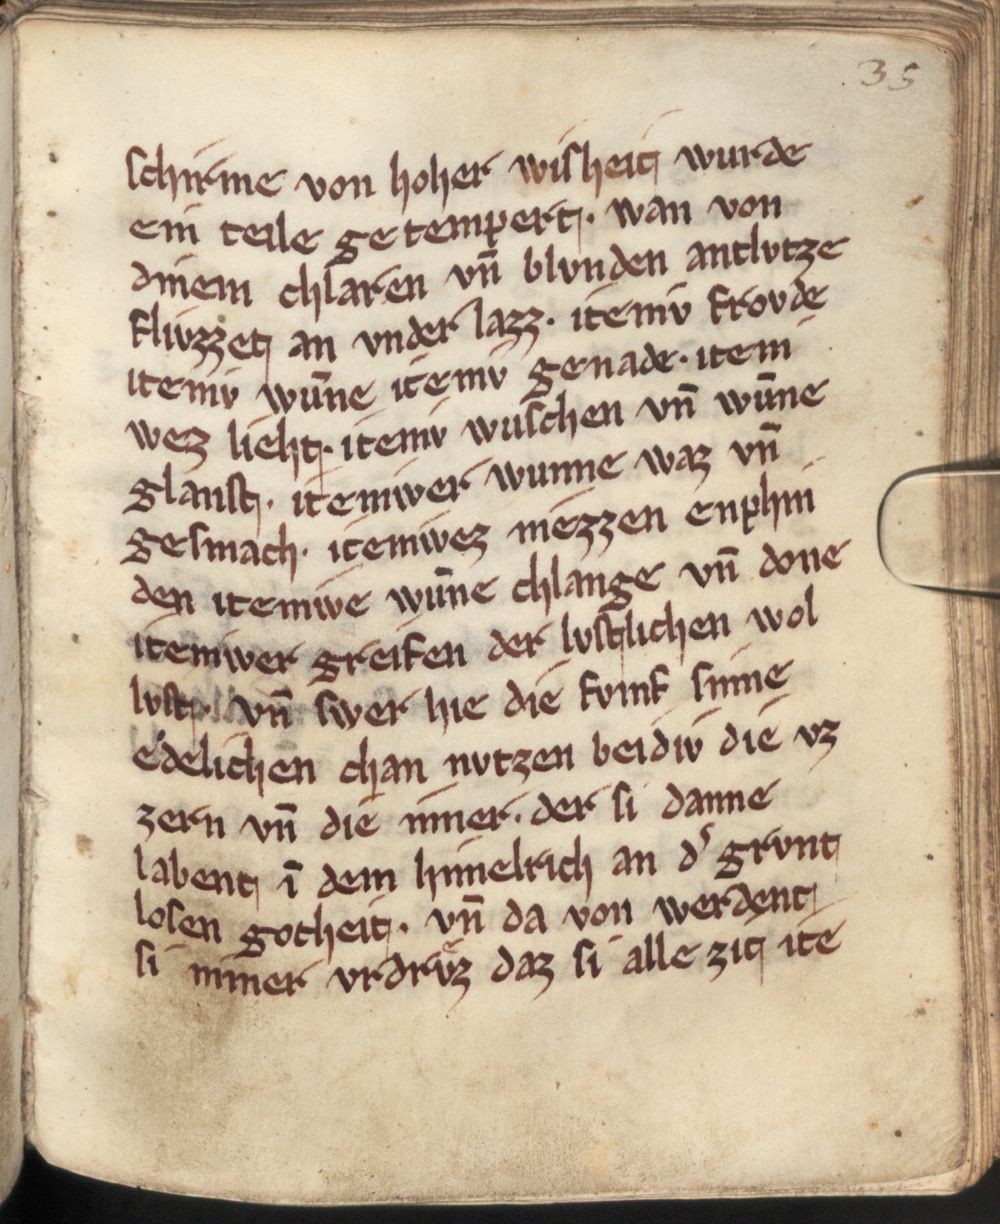 35
schirme von hoher wisheit wurde
ein teile getempert. wan von
dinem chlaren vn̄ blvnden antlvtze
flivzzet an vnder lazz. itemiv frovde
itemiv wu̅ne itemiv genade. item
wez lieht. itemiv wuschen vn̄ wu̅ne
glanst. itemwer wunne waz vn̄
gesmach. itemwez mezzen enphin
den itemwe wu̅ne chlange vn̄ done
itemwer greifen der lvstlichen wol
lvst. vn̄ swer hie die fvmf sinne
edelichen chan nvtzen beidiv die vz
zern vn̄ die inner. der si danne
labent ī dem himelrich an d͛ grvnt
losen gotheit. vn̄ da von werdent
si nimer vrdrvͤz daz si alle zit ite